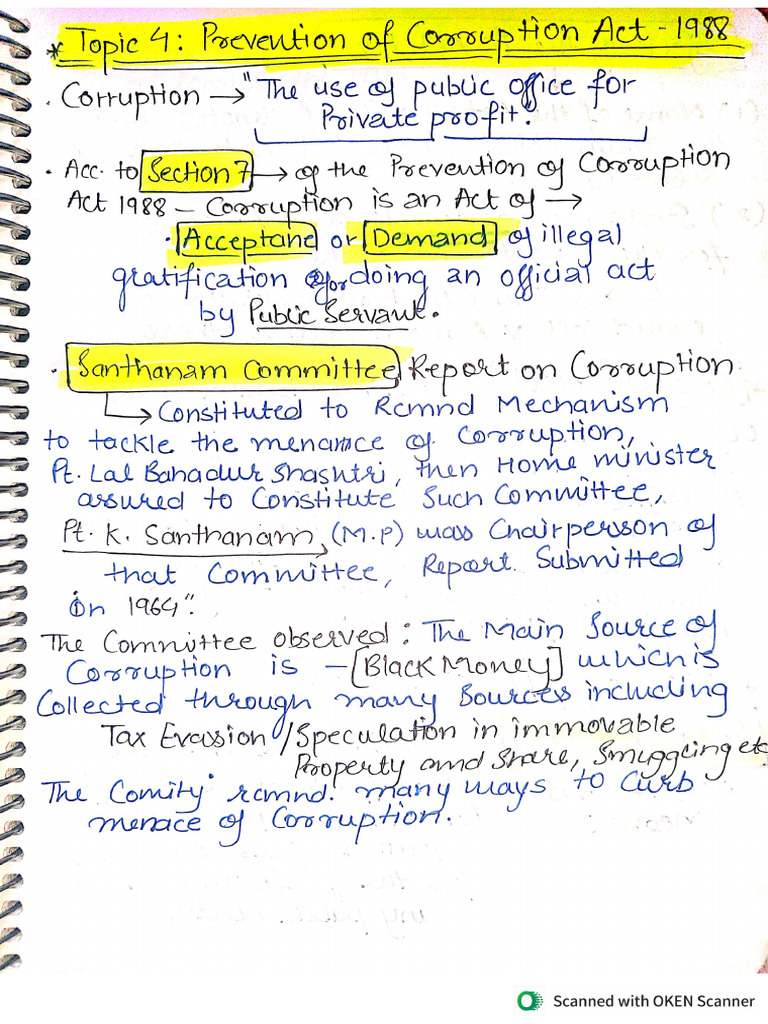 * Topic 4: Prevention of Corruption Act - 1988
. Corruption → "The use of public office for
Private profit".
. Acc. to Section 7 → of the Prevention of Corruption
Act 1988 - Corruption is an Act of →
. Acceptance or Demand of illegal
gratification for doing an official act
by Public Servant.
. Santhanam Committee Report on Corruption
↳ Constituted to Rcmnd Mechanism
to tackle the menance of Corruption,
Pt. Lal Bahadur Shashtri, then Home minister
assured to Constitute Such Committee,
Pt. K. Santhanam, (M.P) was Chairperson of
that Committee, Report Submitted
in 1964".
The Committee observed: The Main Source of
Corruption is - [Black Money] which is
Collected through many Sources including
Tax Evassion / Speculation in immovable
Property and Share, Smuggling etc.
The Comity rcmnd. many ways to Curb
menace of Corruption.
Scanned with OKEN Scanner